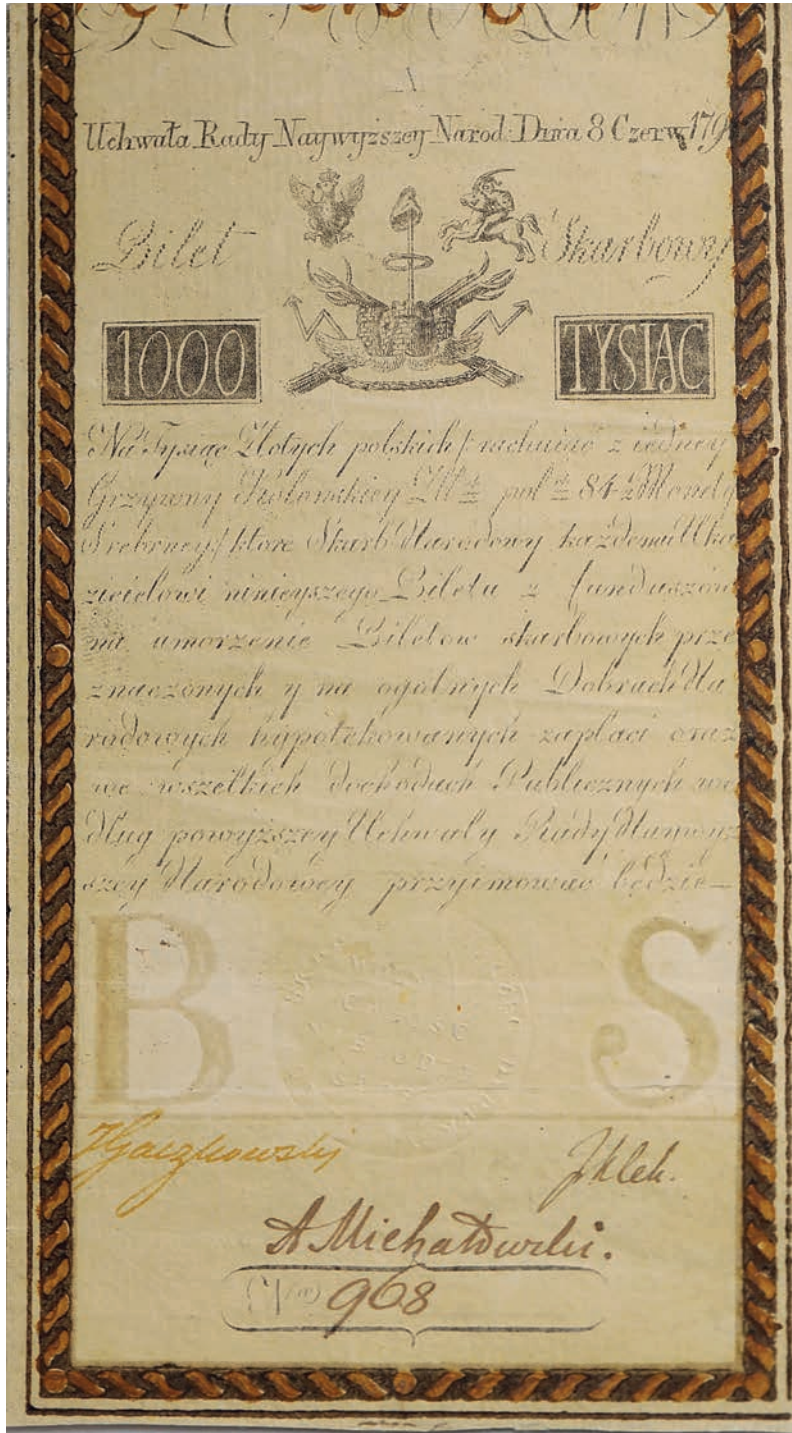 Uchwała Rady Naywyższey Narod: Dnia 8 Czerw 179
Bilet Skarbowy
1000 TYSIĄC
Na Tysiąc Złotych polskich / rachuiąc z iedney
Grzywny Kolonskiey Zll pol 84 ½ Monety
Srebrney / ktore Skarb Narodowy każdemu Uka
zicielowi ninieyszego Biletu z funduszów
na umorzenie Biletow skarbowych prze
znaczonych y na ogolnych Dobrach Na
rodowych hypotekowanych zapłaci oraz
we wszelkich dochodach Publicznych we
dług powyższey Uchwały Rady Naywyż
szey Narodowey przyimować będzie
B S
JGaczkowski
JKlek.
A Michałowski.
968